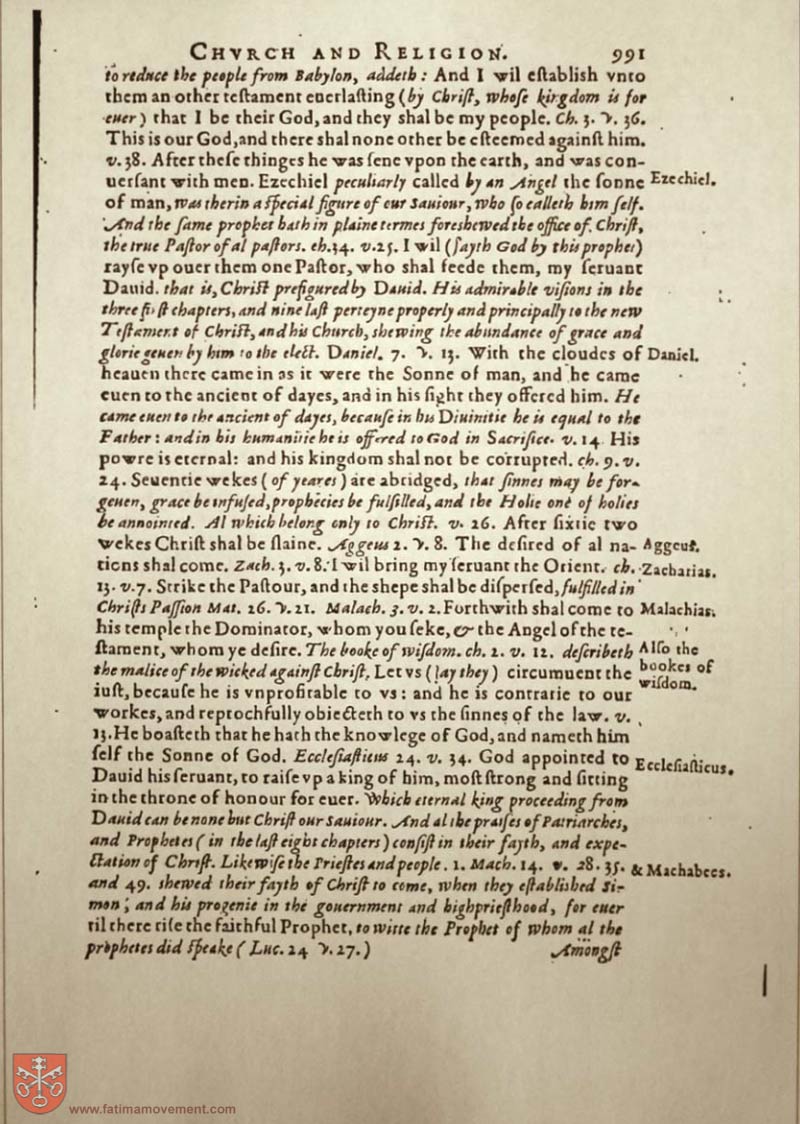 CHVRCH AND RELIGION. 991
to reduce the people from Babylon, addeth: And I wil eſtabliſh vnto
them an other teſtament euerlaſting (by Chriſt, whoſe kingdom is for
euer) that I be their God, and they shal be my people. Ch. 3. v. 36.
This is our God, and there shal none other be eſteemed againſt him.
v. 38. After theſe thinges he was ſene vpon the earth, and was con-
uerſant with men. Ezechiel peculiarly called by an Angel the ſonne Ezechiel.
of man, was therin a ſpecial figure of our Sauiour, who ſo calleth him ſelf.
And the ſame prophet hath in plaine termes foreshewed the office of Chriſt,
the true Paſtor of al paſtors. ch. 34. v. 25. I wil (ſayth God by this prophet)
rayſe vp ouer them one Paſtor, who shal feede them, my ſeruant
Dauid. that is, Chriſt prefigured by Dauid. His admirable viſions in the
three firſt chapters, and nine laſt perteyne properly and principally to the new
Teſtament of Chriſt, and his Church, shewing the abundance of grace and
glorie geuen by him to the elect. Daniel. 7. v. 13. With the cloudes of Daniel.
heauen there came in as it were the Sonne of man, and he came
euen to the ancient of dayes, and in his ſight they offered him. He
came euen to the ancient of dayes, becauſe in his Diuinitie he is equal to the
Father: and in his humanitie he is offered to God in Sacrifice. v. 14 His
powre is eternal: and his kingdom shal not be corrupted. ch. 9. v.
24. Seuentie wekes (of yeares) are abridged, that ſinnes may be for-
geuen, grace be infuſed, prophecies be fulfilled, and the Holie one of holies
be annointed. Al which belong only to Chriſt. v. 26. After ſixtie two
wekes Chriſt shal be ſlaine. Aggeus 2. v. 8. The deſired of al na- Aggeus.
tions shal come. Zach. 3. v. 8. I wil bring my ſeruant the Orient. ch. Zacharias.
13. v. 7. Strike the Paſtour, and the shepe shal be diſperſed, fulfilled in
Chriſts Paſſion Mat. 26. v. 21. Malach. 3. v. 2. Forthwith shal come to Malachias.
his temple the Dominator, whom you ſeke, & the Angel of the te-
ſtament, whom ye deſire. The booke of wiſdom. ch. 2. v. 12. deſcribeth Alſo the
the malice of the wicked againſt Chriſt, Let vs (ſay they) circumuent the bookes of
iuſt, becauſe he is vnprofitable to vs: and he is contrarie to our wiſdom.
workes, and reprochfully obiecteth to vs the ſinnes of the law. v.
13. He boaſteth that he hath the knowlege of God, and nameth him
ſelf the Sonne of God. Eccleſiaſticus 24. v. 34. God appointed to Eccleſiaſticus.
Dauid his ſeruant, to raiſe vp a king of him, moſt ſtrong and ſitting
in the throne of honour for euer. Which eternal king proceeding from
Dauid can be none but Chriſt our Sauiour. And al the praiſes of Patriarches,
and Prophetes (in the laſt eight chapters) conſiſt in their fayth, and expe-
ctation of Chriſt. Likewiſe the Prieſtes and people. 1. Mach. 14. v. 28. 35. & Machabees.
and 49. shewed their fayth of Chriſt to come, when they eſtablished Si-
mon, and his progenie in the gouernment and highprieſthood, for euer
til there riſe the faithful Prophet, to witte the Prophet of whom al the
prophetes did ſpeake (Luc. 24 v. 27.) Amongſt
www.fatimamovement.com